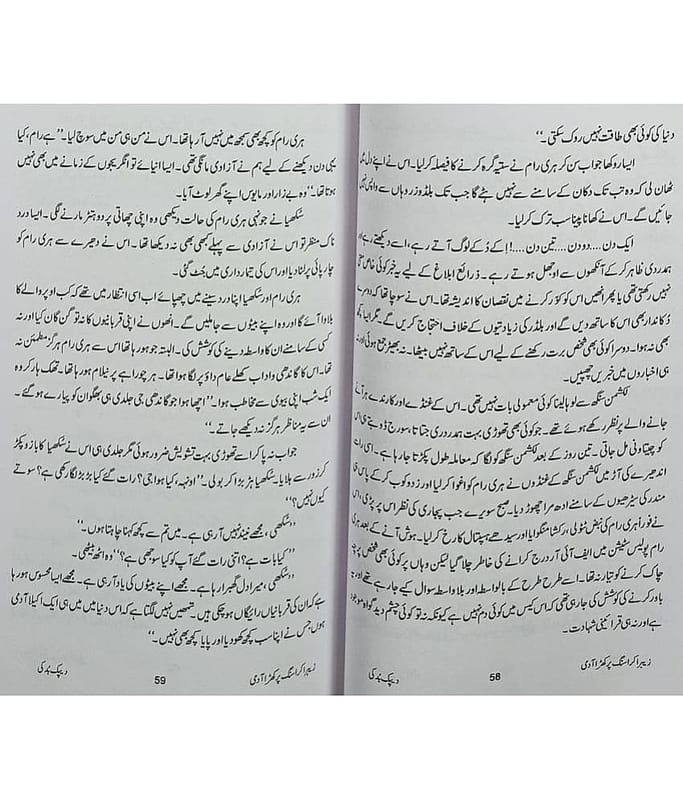 دنیا کی کوئی بھی طاقت نہیں روک سکتی۔‘‘
ایسا روکھا جواب سن کر ہری رام نے ستیہ گرہ کرنے کا فیصلہ کرلیا۔ اس نے اپنے دل میں
ٹھان لی کہ وہ تب تک دکان کے سامنے سے نہیں ہٹے گا جب تک بلڈوزر وہاں سے واپس نہیں
جائیں گے۔ اس نے کھانا پینا سب ترک کرلیا۔
ایک دن....دو دن....تین دن....!! اِکے دُکے لوگ آتے رہے، اسے دیکھتے رہے اور
ہمدردی ظاہر کرکے آنکھوں سے اوجھل ہوتے رہے۔ ذرائع ابلاغ کے لیے یہ خبر کوئی خاص معنی
نہیں رکھتی تھی یا پھر انھیں اس کو کوَر کرنے میں نقصان کا اندیشہ تھا۔ اس نے سوچا تھا کہ دوسرے
دُکاندار بھی اس کا ساتھ دیں گے اور بلڈر کی زیادتیوں کے خلاف احتجاج کریں گے۔ مگر ایسا کچھ
بھی نہ ہوا۔ دوسرا کوئی بھی شخص برت رکھنے کے لیے اس کے ساتھ نہیں بیٹھا۔ نہ بھیڑ جمع ہوئی اور نہ
ہی اخباروں میں خبریں چھپیں۔
لکشمن سنگھ سے لوہا لینا کوئی معمولی بات نہیں تھی۔ اس کے غنڈے اور کارندے ہر آنے
جانے والے پر نظر رکھے ہوئے تھے۔ جو کوئی بھی تھوڑی بہت ہمدردی جتاتا، سورج ڈوبتے ہی اس
کو چیتاونی مل جاتی۔ تین روز کے بعد لکشمن سنگھ کو لگا کہ معاملہ طول پکڑتا جارہا ہے۔ اسی رات
اندھیرے کی آڑ میں لکشمن سنگھ کے غنڈوں نے ہری رام کو اغوا کرلیا اور زدوکوب کرکے پاس کی
مندر کی سیڑھیوں کے سامنے ادھ مرا چھوڑ دیا۔ صبح سویرے جب پجاری کی نظر اس پر پڑی، اس
نے فوراً ہری رام کی نبض ٹٹولی، رکشا منگوایا اور سیدھے ہسپتال کا رخ کرلیا۔ ہوش آنے کے بعد ہری
رام پولیس سٹیشن میں ایف آئی آر درج کرانے کی خاطر چلا گیا لیکن وہاں پر کوئی بھی شخص پرچہ
چاک کرنے کو تیار نہ تھا۔ اسے طرح طرح کے بالواسطہ اور بلا واسطہ سوال کیے جارہے تھے اور یہ
باور کرنے کی کوشش کی جارہی تھی کہ اس کیس میں کوئی دم نہیں ہے کیونکہ نہ تو کوئی چشم دید گواہ موجود
ہے اور نہ ہی قرائینی شہادت۔
زیبرا کراسنگ پر کھڑا آدمی
58
دیپک بُدکی
ہری رام کو کچھ بھی سمجھ میں نہیں آرہا تھا۔ اس نے من ہی من میں سوچ لیا۔ ’’ہے رام، کیا
یہی دن دیکھنے کے لیے ہم نے آزادی مانگی تھی۔ ایسا انیائے تو انگریجوں کے زمانے میں بھی نہیں
ہوتا تھا۔‘‘ وہ بے زار اور مایوس اپنے گھر لوٹ آیا۔
سُکھیا نے جونہی ہری رام کی حالت دیکھی وہ اپنی چھاتی پر دوہتڑ مارنے لگی۔ ایسا درد
ناک منظر تو اس نے آزادی سے پہلے کبھی بھی نہ دیکھا تھا۔ اس نے دھیرے سے ہری رام کو
چارپائی پر لٹا دیا اور اس کی تیمارداری میں جُٹ گئی۔
ہری رام اور سُکھیا اپنا درد سینے میں چھپائے اب اسی انتظار میں تھے کہ کب اوپر والے کا
بلاوا آئے گا اور وہ اپنے بیٹوں سے جاملیں گے۔ انھوں نے اپنی قربانیوں کا نہ تو گن گان کیا اور نہ
کسی کے سامنے ان کا واسطہ دینے کی کوشش کی۔ البتہ جو ہورہا تھا اس سے ہری رام ہرگز مطمئن نہ
تھا۔ اس کا گاندھی واد اب کھلے عام داؤ پر لگا ہوا تھا۔ ہر چوراہے پر نیلام ہورہا تھا۔ تھک ہار کر وہ
ایک شب اپنی بیوی سے مخاطب ہوا۔ ’’اچھا ہوا جو گاندھی جی جلدی ہی بھگوان کو پیارے ہوگئے۔
ان سے یہ مناظر ہرگز نہ دیکھے جاتے۔‘‘
جواب نہ پاکر اسے تھوڑی بہت تشویش ضرور ہوئی مگر جلدی ہی اس نے سُکھیا کا بازو پکڑ
کر زور سے ہلایا۔ سُکھیا بڑبڑا کر بولی۔ ’’اونہہ، کیا ہوا جی؟ رات گئے کیا بڑبڑ لگا رکھی ہے؟ سوتے
کیوں نہیں؟‘‘
’’سُکھی، مجھے نیند نہیں آرہی ہے۔ میں تم سے کچھ کہنا چاہتا ہوں۔‘‘
’’کیا بات ہے؟ اتنی رات گئے آپ کو کیا سوجھی ہے؟‘‘ وہ اٹھ بیٹھی۔
’’سُکھی، میرا دل گھبرا رہا ہے۔ مجھے اپنے بیٹوں کی یاد آرہی ہے۔ مجھے ایسا محسوس ہورہا
ہے کہ ان کی قربانیاں رائیگاں ہوچکی ہیں۔ تمھیں نہیں لگتا ہے کہ اس دنیا میں میں ہی ایک اکیلا آدمی
ہوں جس نے اپنا سب کچھ کھودیا اور پایا کچھ بھی نہیں۔‘‘
زیبرا کراسنگ پر کھڑا آدمی
59
دیپک بُدکی